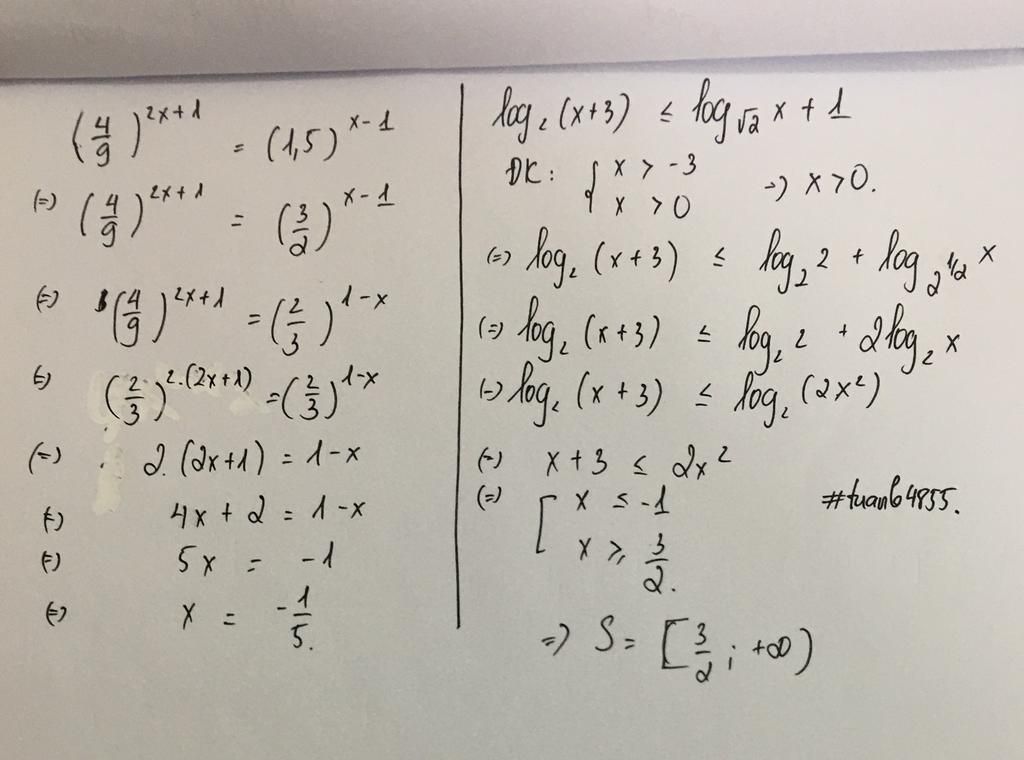 (4/9)^{2x+1} = (1,5)^{x-1}
(=) (4/9)^{2x+1} = (3/2)^{x-1}
(=) (4/9)^{2x+1} = (2/3)^{1-x}
(=) (2/3)^{2.(2x+1)} = (2/3)^{1-x}
(=) 2.(2x+1) = 1-x
(=) 4x + 2 = 1-x
(=) 5x = -1
(=) x = -1/5.
log₂(x+3) ≤ log_{√2} x + 1
ĐK: { x > -3
x > 0 => x > 0.
(=) log₂ (x+3) ≤ log₂ 2 + log_{2^{1/2}} x
(=) log₂ (x+3) ≤ log₂ 2 + 2log₂ x
(=) log₂ (x+3) ≤ log₂ (2x²)
(=) x+3 ≤ 2x²
(=) [ x ≤ -1
x ≥ 3/2.
#tuan64855.
=) S = [3/2; +∞)